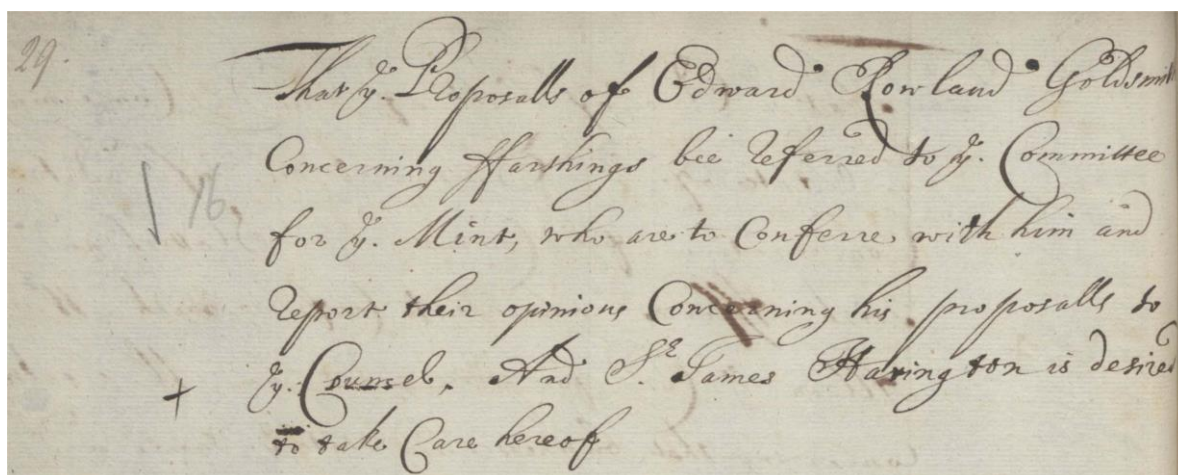 29.
That ye. Proposalls of Edward Rowland Goldsmit
Concerning ffarthings bee Referred to ye. Committee
16
for ye. Mint, who are to Conferre with him and
Report their opinions Concerning his proposalls to
+ ye. Counsel, And Sr. James Harington is desired
to take Care hereof